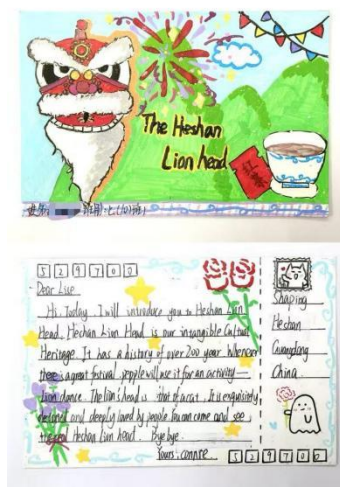 The Heshan
Lion head
七(10)班
5 2 9 7 0 0
Dear Lise
Hi. Today I will introduce you to Heshan Lion
Head. Heshan Lion Head is our intangible Cultural
Heritage. It has a history of over 200 year. Whenever
there is a great festival, people will use it for an activity —
Lion dance. The lion's head is that of a cat. It is exquisitely
and deeply loved by people. You can come and see
the real Heshan Lion head. Bye bye.
Yours: connie
Shaping
Heshan
Guangdong
China
5 2 9 7 0 0